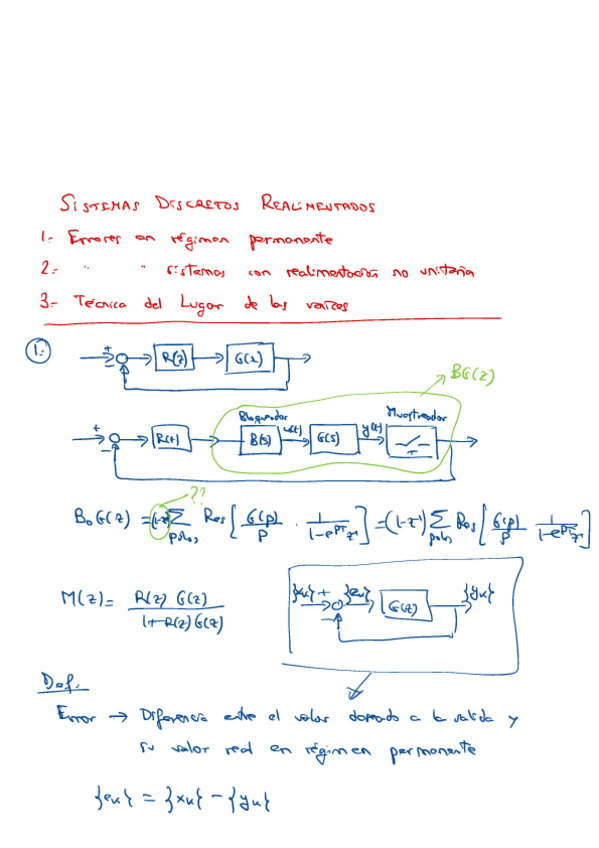 SISTEMAS DISCRETOS REALIMENTADOS
1.- Errores en régimen permanente
2.- " " sistemas con realimentación no unitaria
3.- Técnica del Lugar de las raíces
1.-
+ - R(z) G(z)
BG(z)
Bloqueador Muestreador
+ - R(z) B(s) u(t) G(s) y(t) T
??
B₀G(z) = (1-z⁻¹) Σ polos Res [ G(p)/p · 1/(1-e^{pT}z⁻¹) ] = (1-z⁻¹) Σ polos Res [ G(p)/p 1/(1-e^{pT}z⁻¹) ]
M(z) = R(z) G(z) / (1+R(z)G(z))
{xk} + - {ek} G(z) {yk}
Def.
Error → Diferencia entre el valor deseado a la salida y
su valor real en régimen permanente
{ek} = {xk} - {yk}